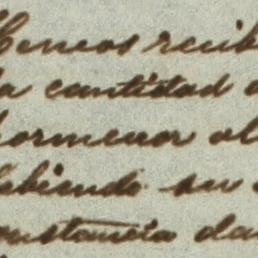 Hemos recib
la cantidad d
formenor al
habiendo su
constancia da